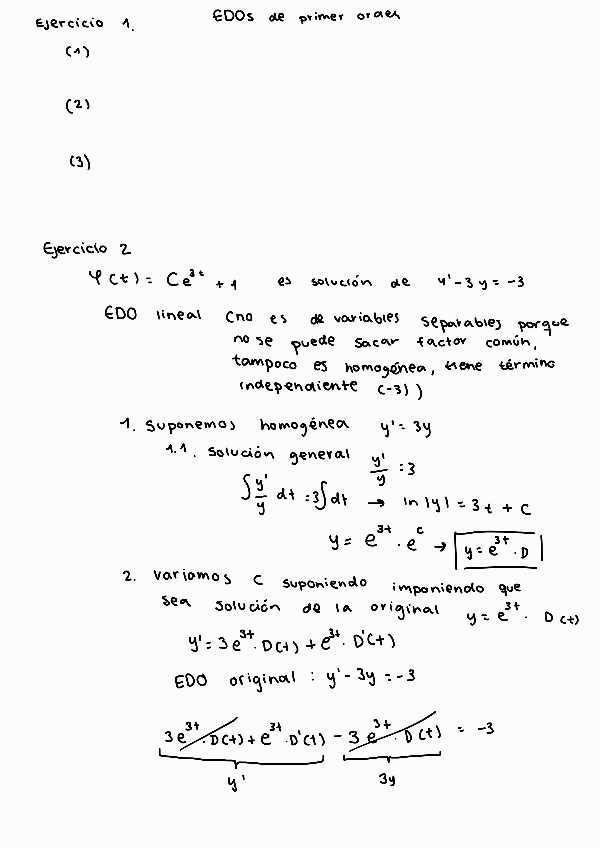 EDOs de primer orden
Ejercicio 1.
(1)
(2)
(3)
Ejercicio 2
φ(t) = Ce^{3t} + 1 es solución de y' - 3y = -3
EDO lineal (no es de variables separables porque
no se puede sacar factor común,
tampoco es homogénea, tiene término
independiente (-3))
1. Suponemos homogénea y' = 3y
1.1. Solución general y'/y = 3
∫ y'/y dt = 3∫dt → ln|y| = 3t + C
y = e^{3t} · e^{c} → y = e^{3t} · D
2. Variamos C suponiendo imponiendo que
sea solución de la original y = e^{3t} · D(t)
y' = 3e^{3t} · D(t) + e^{3t} · D'(t)
EDO original : y' - 3y = -3
3e^{3t} · D(t) + e^{3t} · D'(t) - 3e^{3t} · D(t) = -3
y' 3y